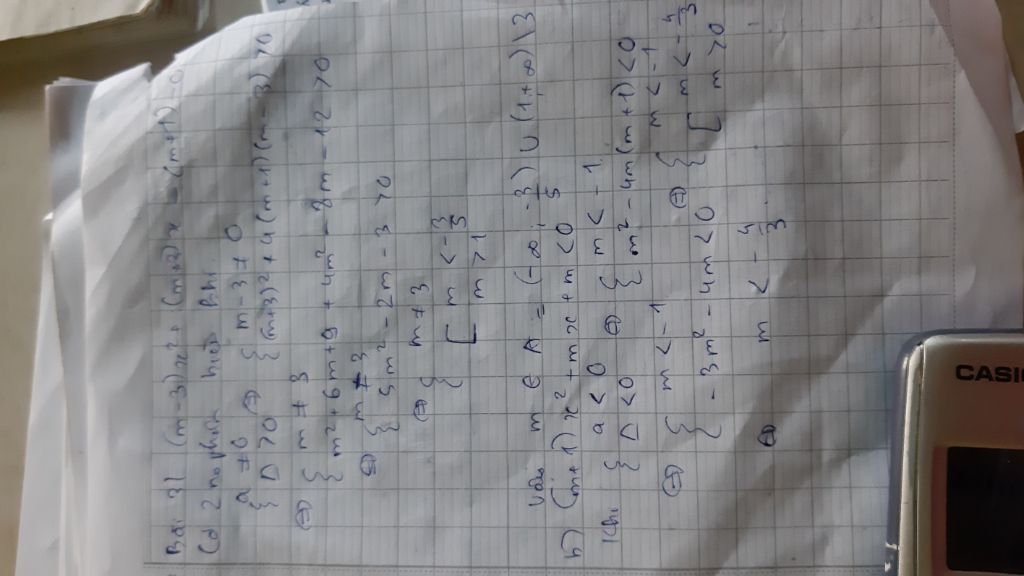 Bài 3) (m-3)x² + (m+3)x - (m+1) = 0
Có 2 no phân biệt khi
{ a ≠ 0
{ Δ > 0 ⇔ { m-3 ≠ 0
{ (m+3)² + 4(m+1)(m-3) > 0
⇔ { m ≠ 3
{ m² + 6m + 9 + 4m² - 8m - 12 > 0
⇔ { m ≠ 3
{ 5m² - 2m - 3 > 0
⇔ { m ≠ 3
{ [ m < -3/5
[ m > 1
Vậy m ∈ A = (-∞; -3/5) ∪ (1; +∞) \ 3
b) (m+1)x² + mx + m < 0
Khi { a < 0
{ Δ < 0 ⇔ { m < -1
{ m² - 4m(m+1) < 0
⇔ { m < -1
{ -3m² - 4m < 0 ⇔ { m < -1
{ [ m < -4/3
[ m > 0
⇔ m < -4/3
CASIO